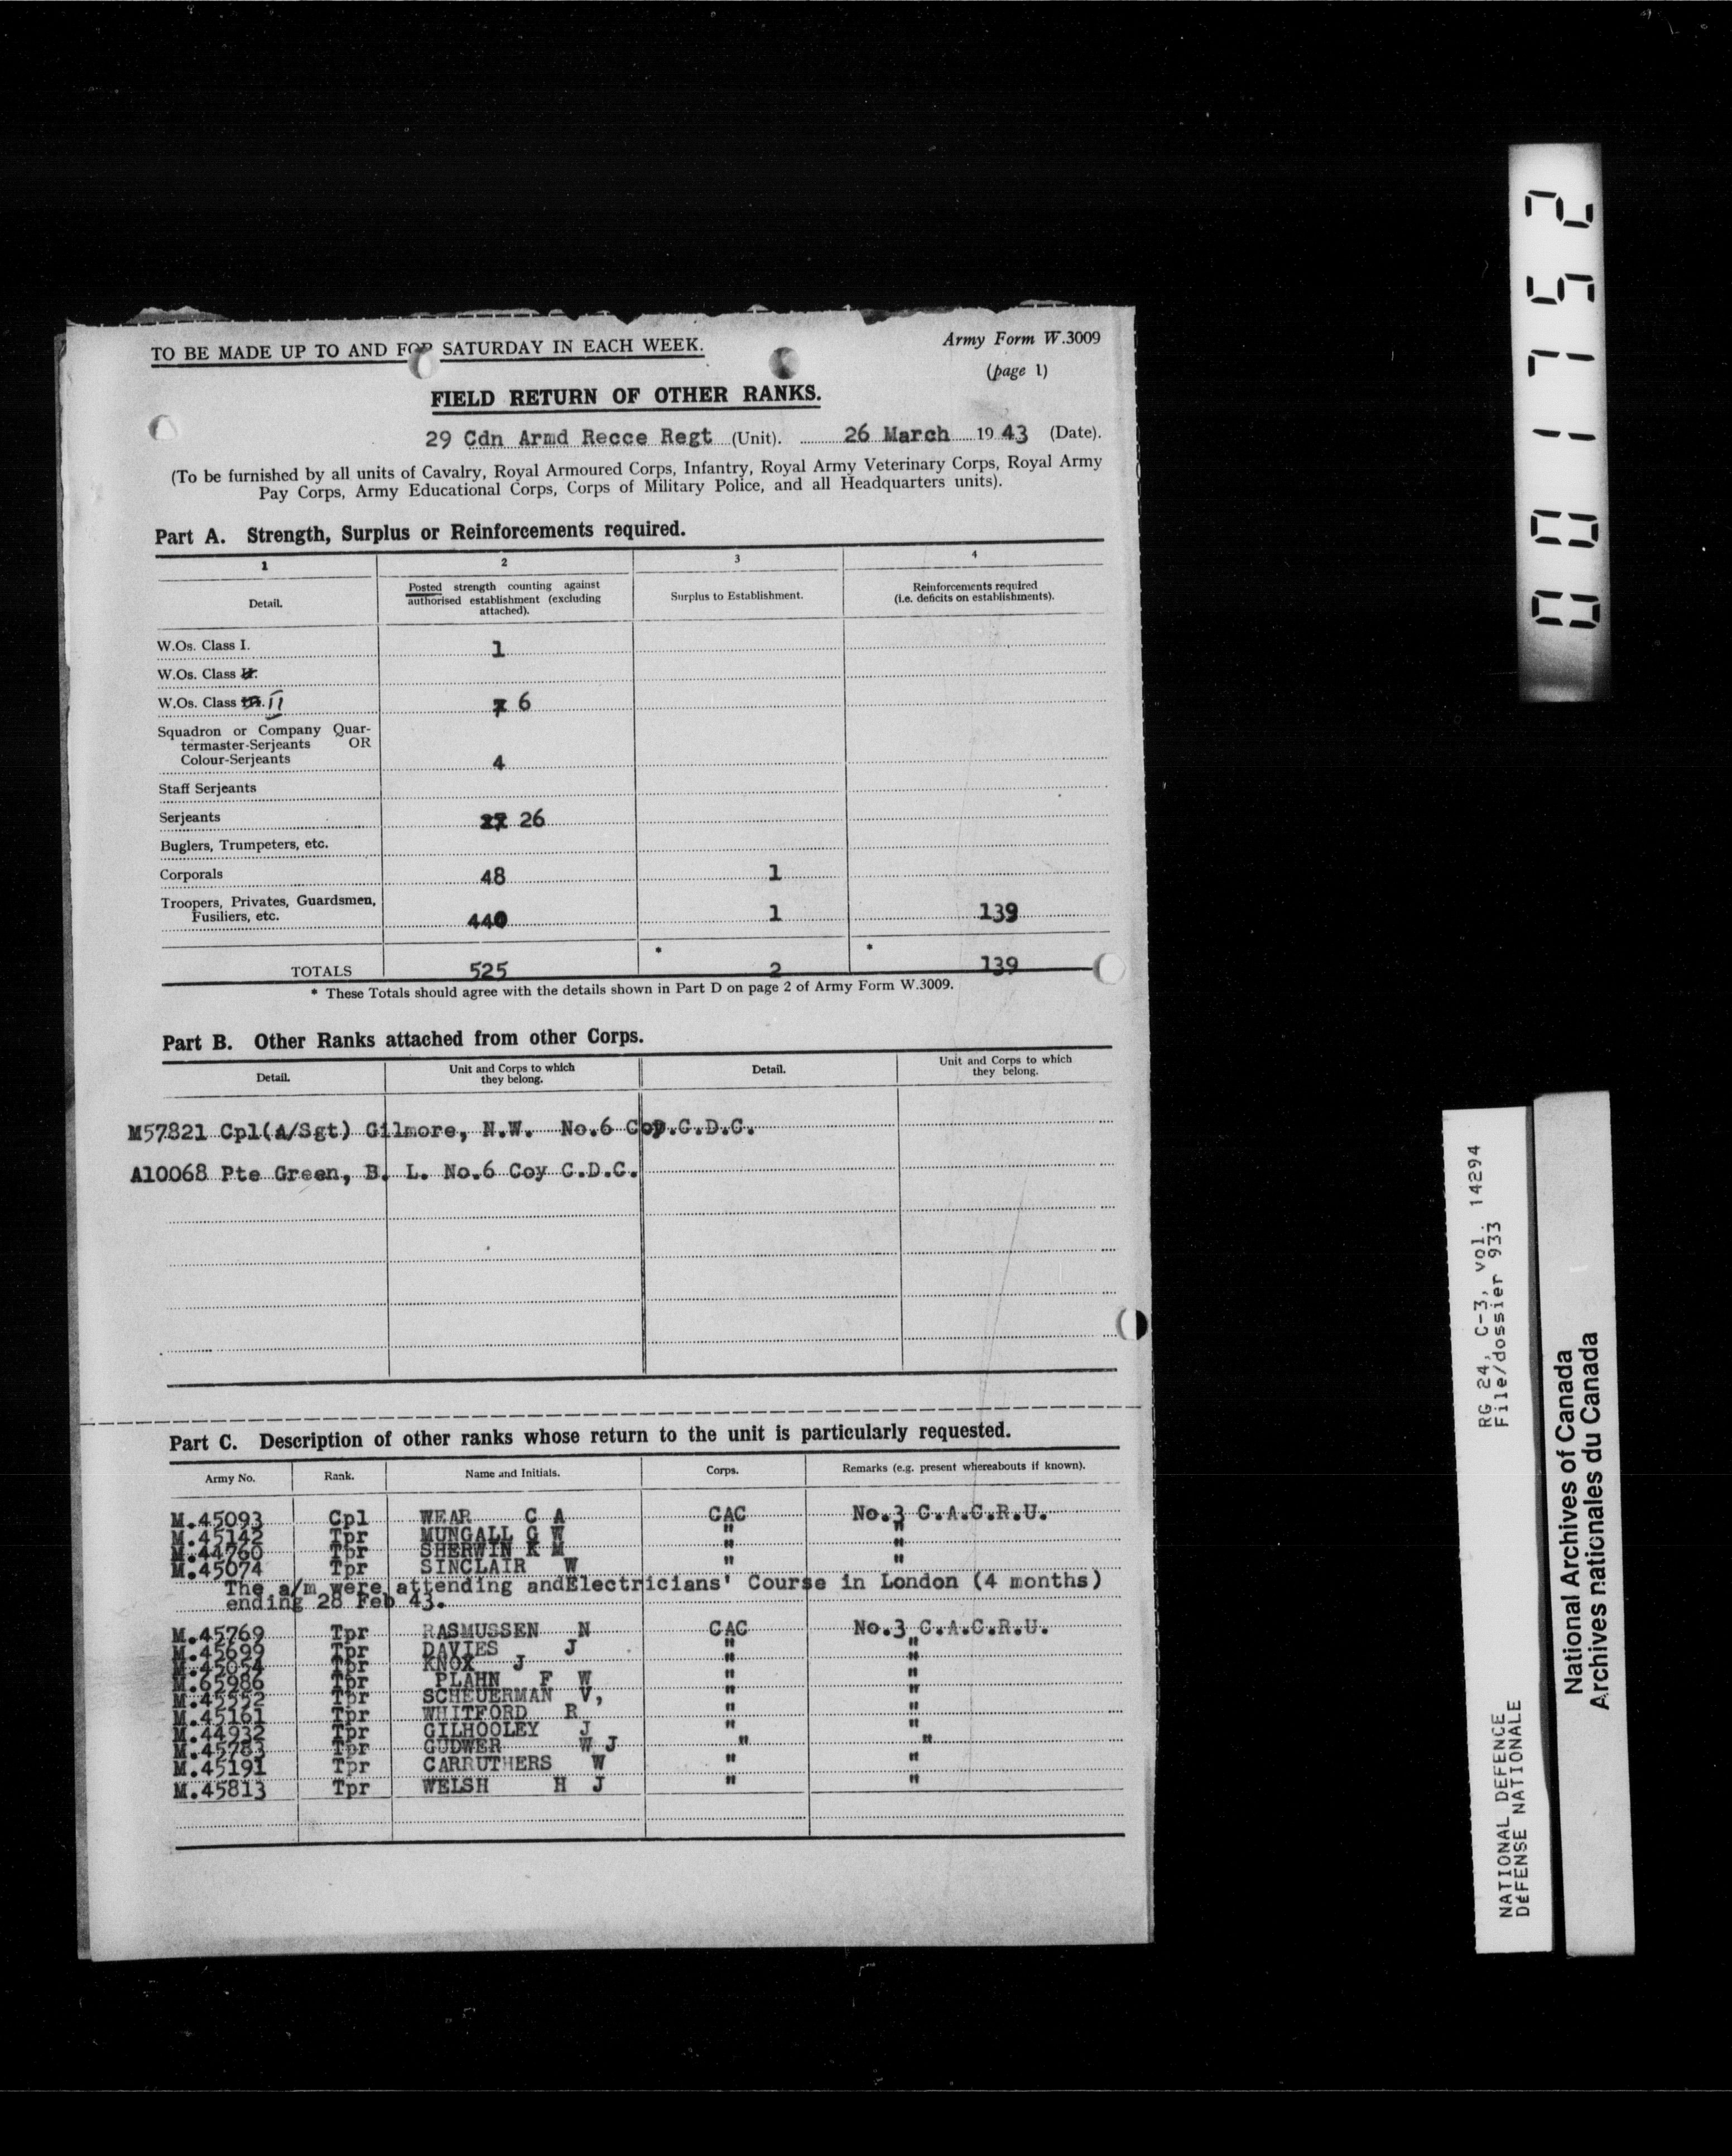 TO BE MADE UP TO AND FOR SATURDAY IN EACH WEEK.
Army Form W.3009
(page 1)
FIELD RETURN OF OTHER RANKS.
29 Cdn Armd Recce Regt (Unit). 26 March 1943 (Date).
(To be furnished by all units of Cavalry, Royal Armoured Corps, Infantry, Royal Army Veterinary Corps, Royal Army
Pay Corps, Army Educational Corps, Corps of Military Police, and all Headquarters units).
Part A. Strength, Surplus or Reinforcements required.
1 2 3 4
Detail.
Posted strength counting against
authorised establishment (excluding
attached).
Surplus to Establishment.
Reinforcements required
(i.e. deficits on establishments).
W.Os. Class I. 1
W.Os. Class II.
W.Os. Class III. II 7 6
Squadron or Company Quar-
termaster-Serjeants OR
Colour-Serjeants 4
Staff Serjeants
Serjeants 27 26
Buglers, Trumpeters, etc.
Corporals 48 1
Troopers, Privates, Guardsmen,
Fusiliers, etc. 440 1 139
* *
TOTALS 525 2 139
* These Totals should agree with the details shown in Part D on page 2 of Army Form W.3009.
Part B. Other Ranks attached from other Corps.
Detail.
Unit and Corps to which
they belong.
Detail.
Unit and Corps to which
they belong.
M57821 Cpl(A/Sgt) Gilmore, N.W. No.6 Coy.C.D.C.
A10068 Pte Green, B. L. No.6 Coy C.D.C.
Part C. Description of other ranks whose return to the unit is particularly requested.
Army No. Rank. Name and Initials. Corps. Remarks (e.g. present whereabouts if known).
M.45093 Cpl WEAR C A CAC No.3 C.A.C.R.U.
M.45142 Tpr MUNGALL G W " "
M.44760 Tpr SHERWIN K M " "
M.45074 Tpr SINCLAIR W " "
The a/m were attending andElectricians' Course in London (4 months)
ending 28 Feb 43.
M.45769 Tpr RASMUSSEN N CAC No.3 C.A.C.R.U.
M.45699 Tpr DAVIES J " "
M.45054 Tpr KNOX J " "
M.65986 Tpr PLAHN F W " "
M.45552 Tpr SCHEUERMAN V, " "
M.45161 Tpr WHITFORD R " "
M.44932 Tpr GILHOOLEY J " "
M.45783 Tpr GUDWER W J " "
M.45191 Tpr CARRUTHERS W " "
M.45813 Tpr WELSH H J " "
001752
RG 24, C-3, vol. 14294
File/dossier 933
NATIONAL DEFENCE
DÉFENSE NATIONALE
National Archives of Canada
Archives nationales du Canada